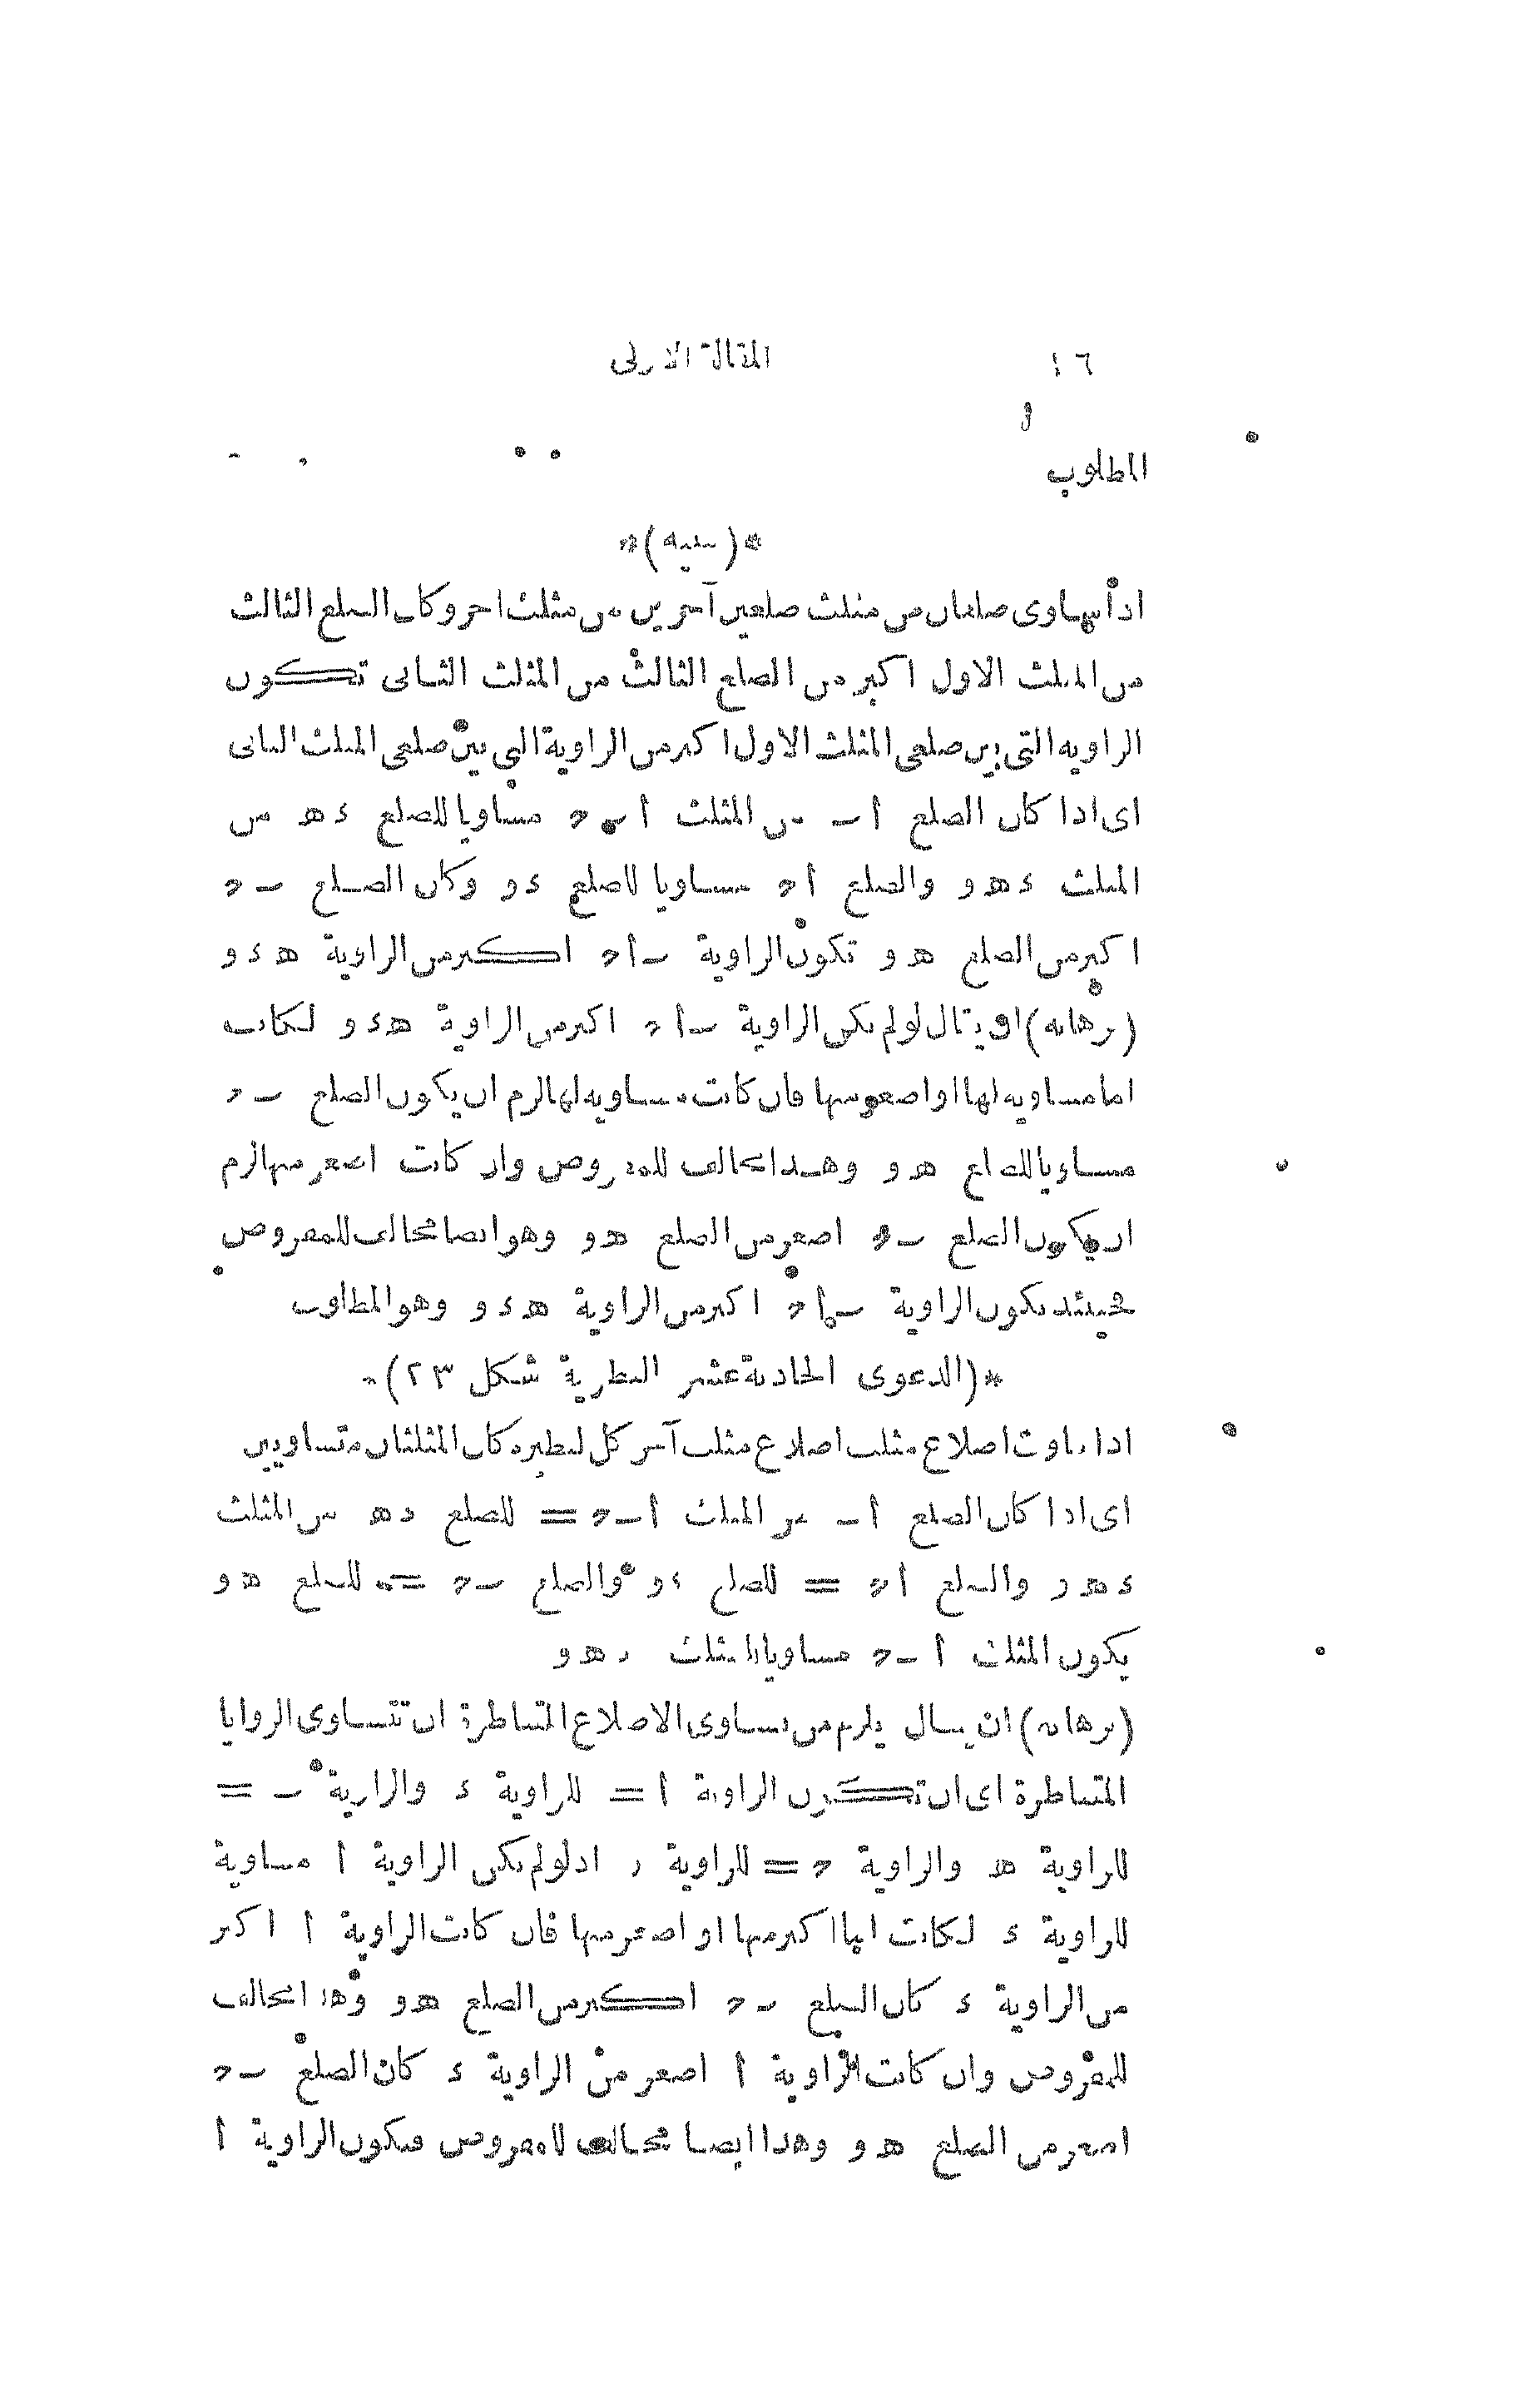 ١٦ المقالة الاولى
المطلوب
*(تنبيه)*
اذا تساوى ضلعان من مثلث ضلعين آخرين من مثلث اخر وكان الضلع الثالث
من المثلث الاول اكبر من الضلع الثالث من المثلث الثانى تكون
الزاويه التى بين ضلعى المثلث الاول اكبر من الزاوية التى بين ضلعى المثلث الثانى
اى اذا كان الضلع أ ب من المثلث أ ب ح مساويا للضلع ء ه من
المثلث ء ه و والضلع أ ح مساويا للضلع ء و وكان الضلع ب ح
اكبر من الضلع ه و تكون الزاوية ب أ ح اكبر من الزاوية ه ء و
(برهانه) ان يقال لو لم تكن الزاوية ب أ ح اكبر من الزاوية ه ء و لكانت
اما مساويه لها او اصغر منها فان كانت مساويه لها لزم ان يكون الضلع ب ح
مساويا للضلع ه و وهذا مخالف للمفروض وان كانت اصغر منها لزم
ان يكون الضلع ب ح اصغر من الضلع ه و وهو ايضا مخالف للمفروض
فحينئذ تكون الزاوية ب أ ح اكبر من الزاوية ه ء و وهو المطلوب
*(الدعوى الحادية عشر النظرية شكل ٢٣)*
اذا ساوت اضلاع مثلث اضلاع مثلث آخر كل لنظيره كان المثلثان متساويين
اى اذا كان الضلع أ ب من المثلث أ ب ح = للضلع ء ه من المثلث
ء ه و والضلع أ ح = للضلع ء و والضلع ب ح = للضلع ه و
يكون المثلث أ ب ح مساويا للمثلث ء ه و
(برهانه) ان يقال يلزم من تساوى الاضلاع المتناظرة ان تتساوى الزوايا
المتناظرة اى ان تكون الزاوية أ = للزاوية ء والزاوية ب =
للزاوية ه والزاوية ح = للزاوية و اذ لو لم تكن الزاوية أ مساوية
للزاوية ء لكانت اما اكبر منها او اصغر منها فان كانت الزاوية أ اكبر
من الزاوية ء كان الضلع ب ح اكبر من الضلع ه و وهذا مخالف
للمفروض وان كانت الزاوية أ اصغر من الزاوية ء كان الضلع ب ح
اصغر من الضلع ه و وهذا ايضا مخالف للمفروض فتكون الزاوية أ